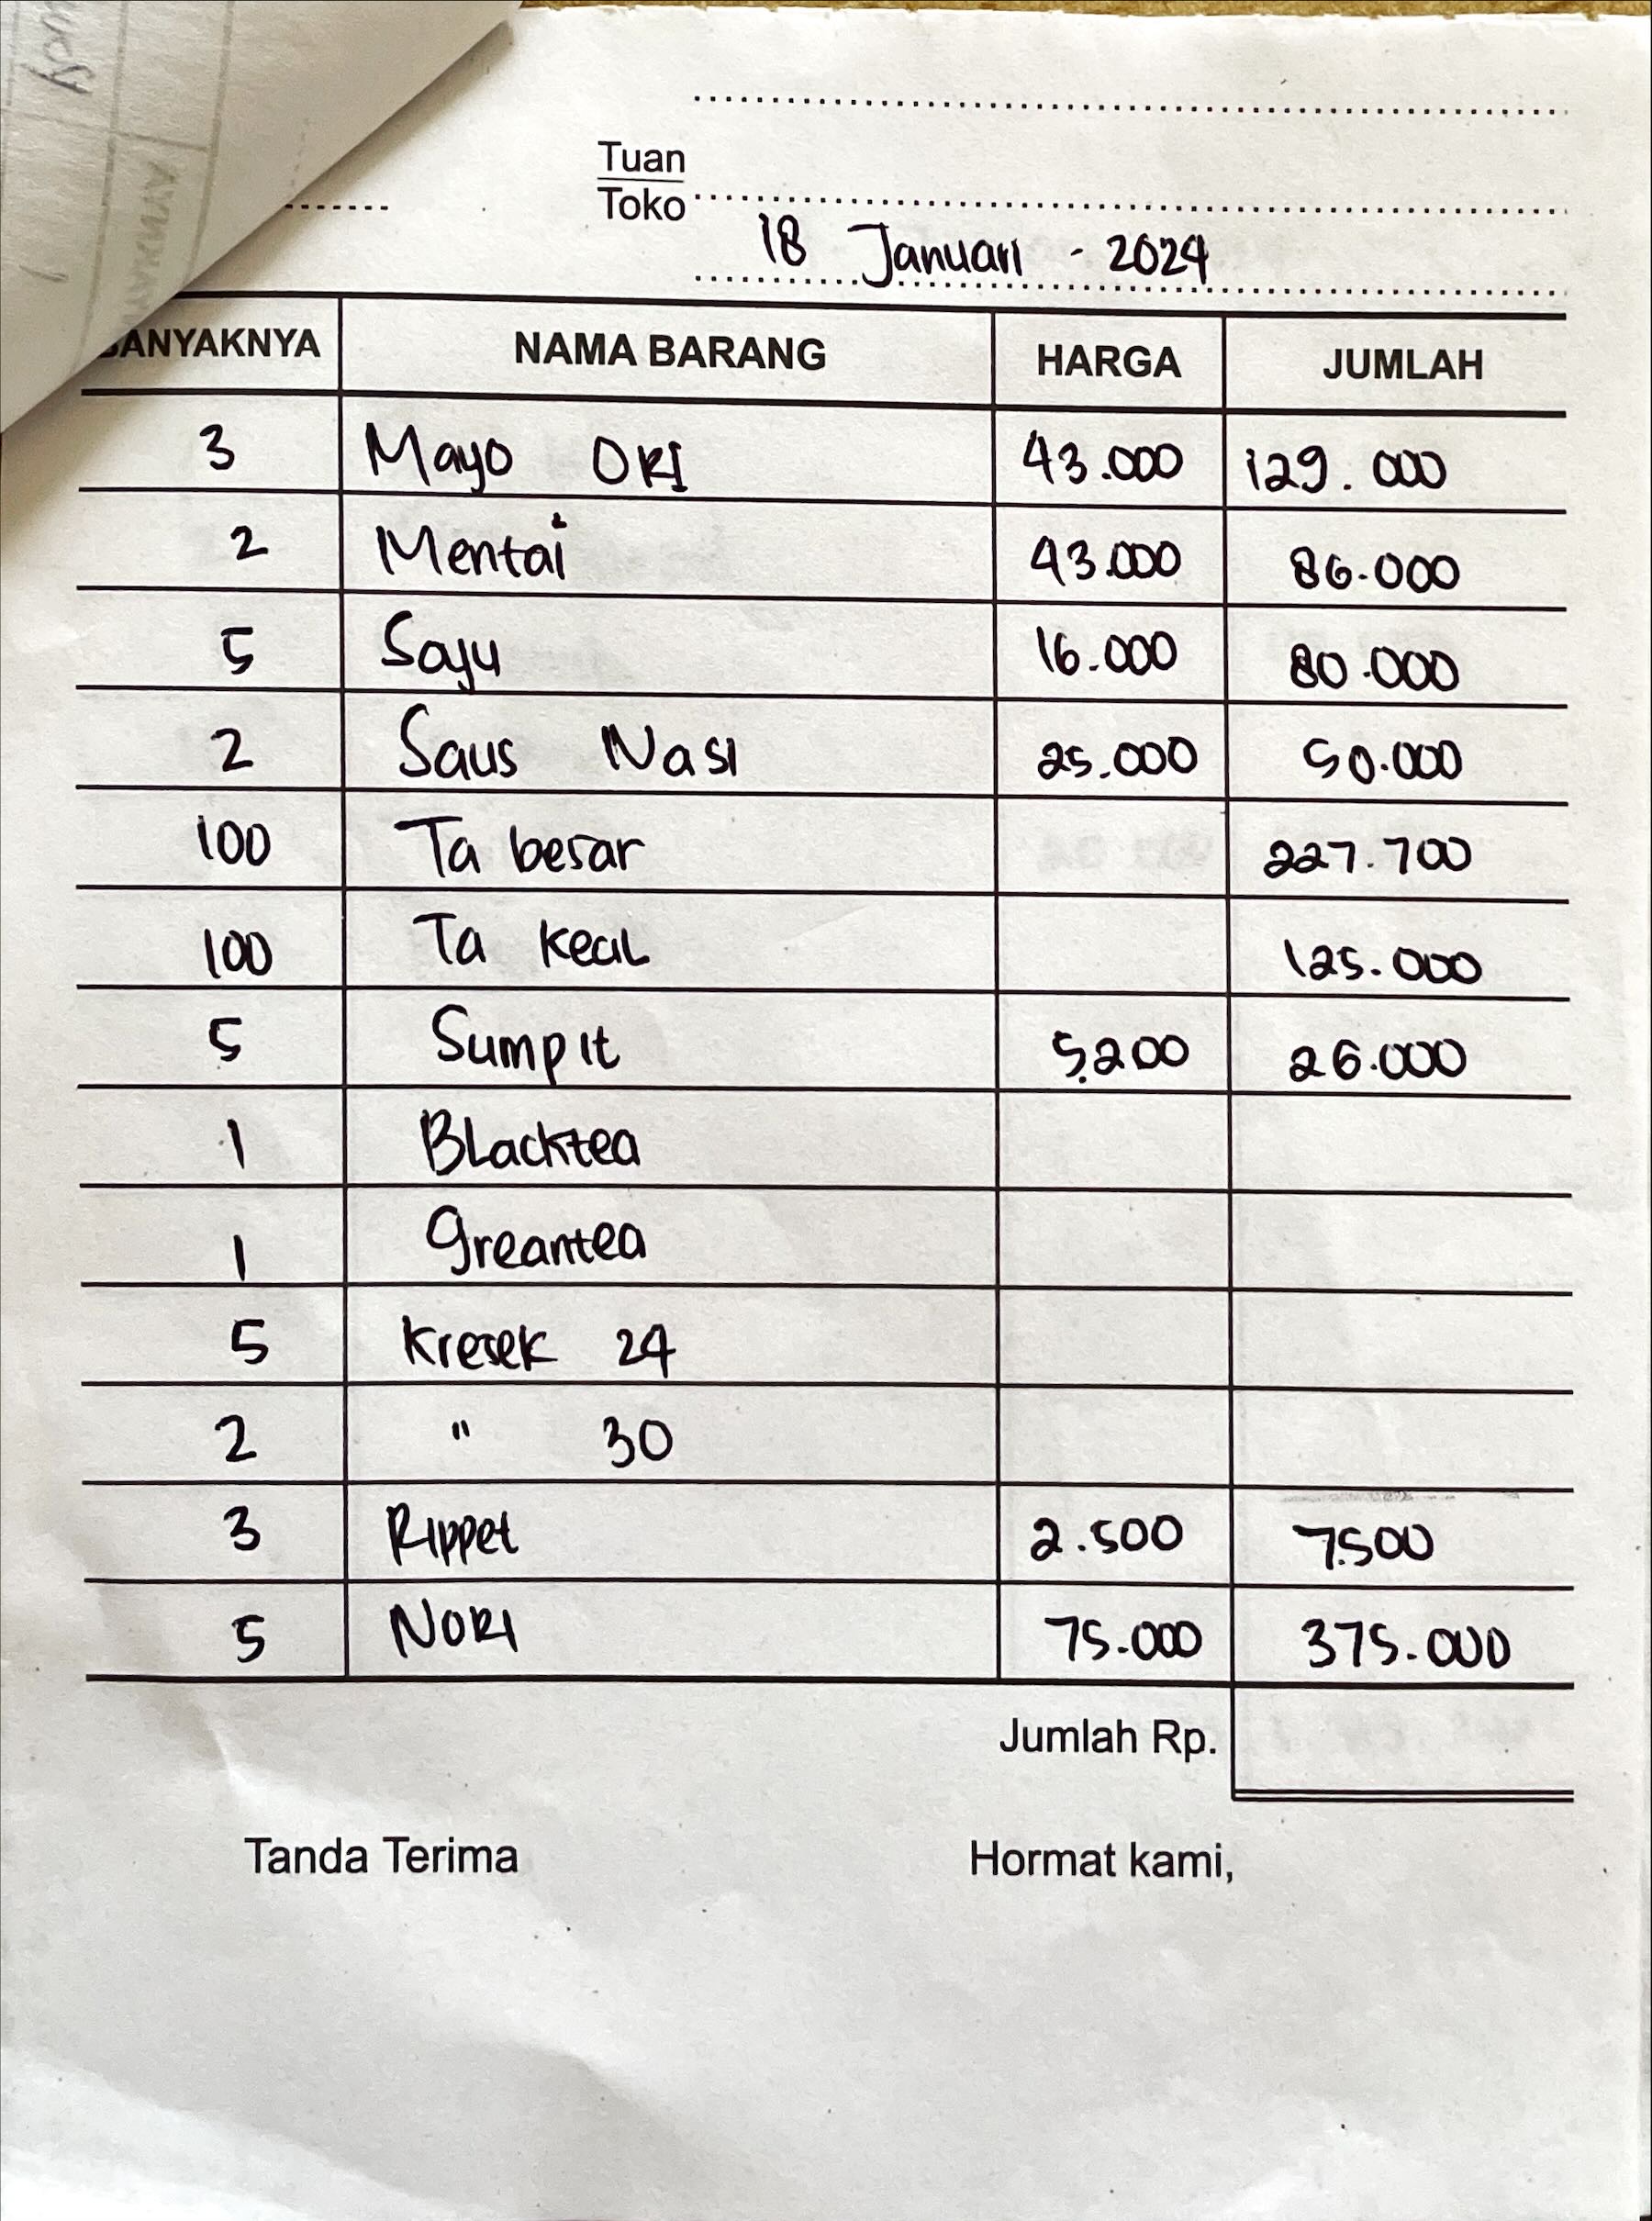 Tuan
Toko
18 Januari - 2024
BANYAKNYA NAMA BARANG HARGA JUMLAH
3 Mayo ORI 43.000 129.000
2 Mentai 43.000 86.000
5 Sayu 16.000 80.000
2 Saus Nasi 25.000 50.000
100 Ta besar 227.700
100 Ta kecil 125.000
5 Sumpit 5.200 26.000
1 Blacktea
1 Greantea
5 Kresek 24
2 " 30
3 Rippet 2.500 7.500
5 NORI 75.000 375.000
Jumlah Rp.
Tanda Terima Hormat kami,